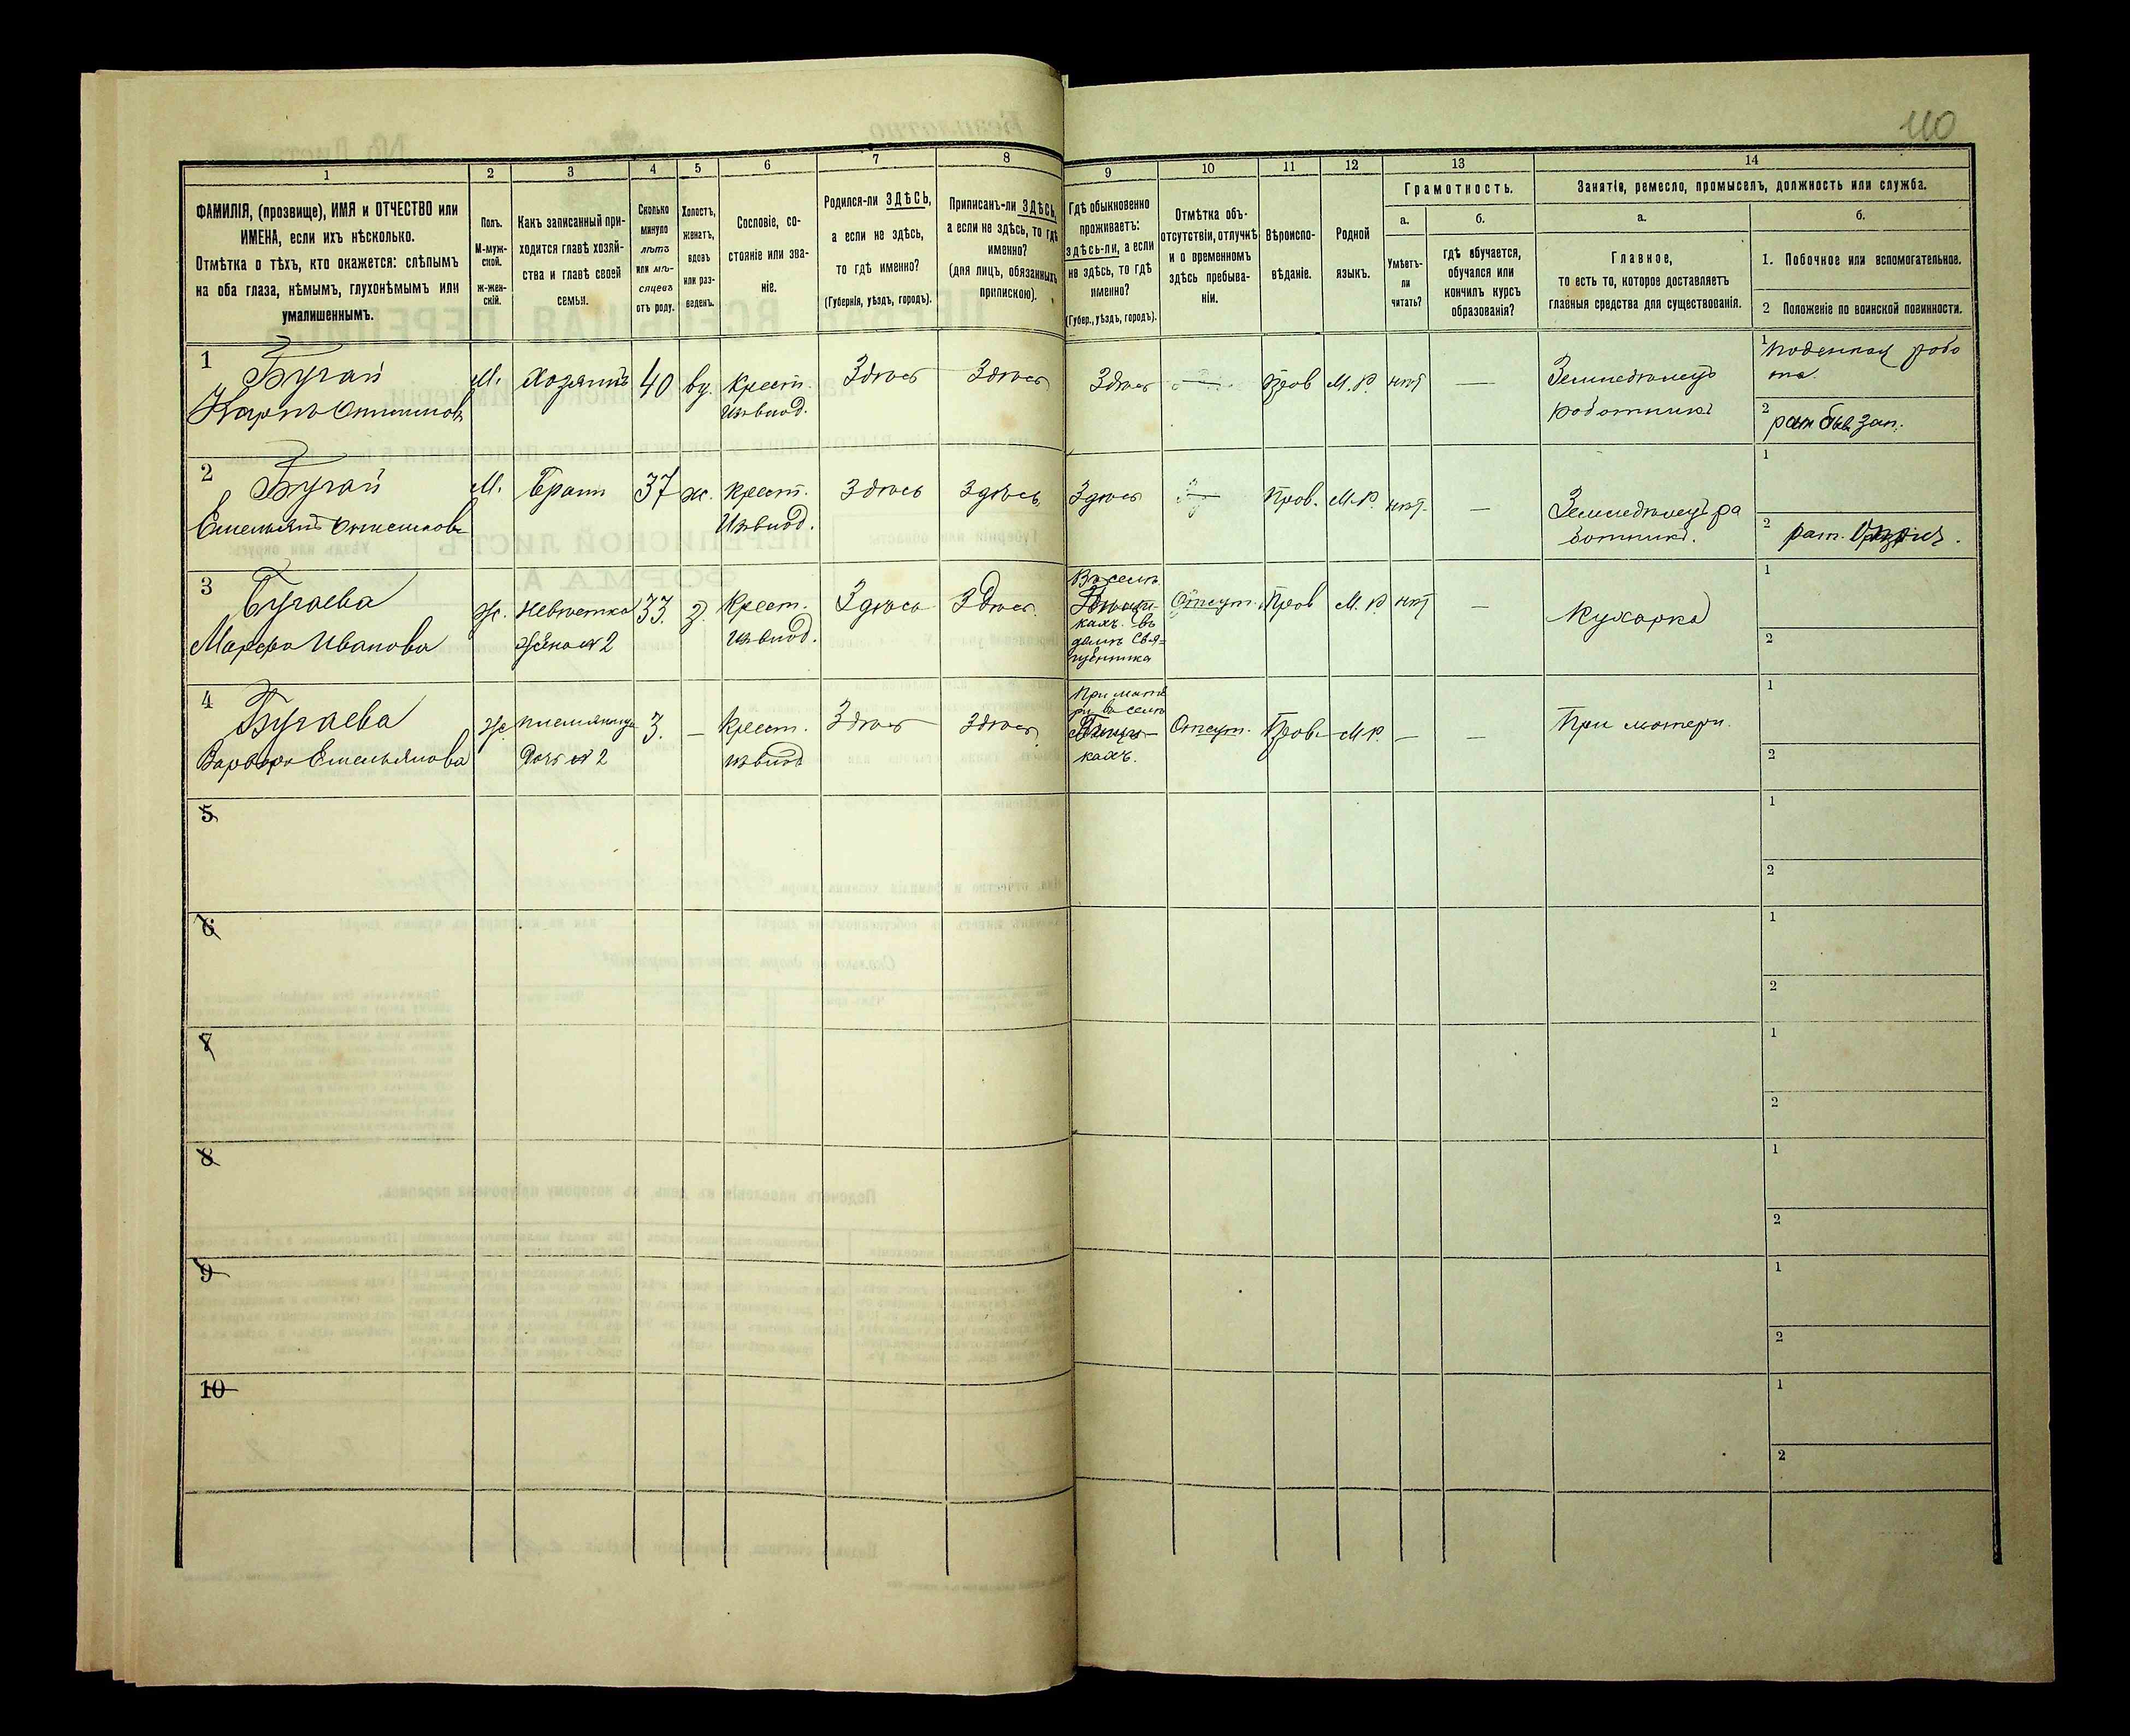 110
1
2
3
4
5
6
7
8
9
10
11
12
13
14
ФАМИЛІЯ, (прозвище), ИМЯ и ОТЧЕСТВО или
ИМЕНА, если ихъ нѣсколько.
Отмѣтка о тѣхъ, кто окажется: слѣпымъ
на оба глаза, нѣмымъ, глухонѣмымъ или
умалишеннымъ.
Полъ.
М-муж-
ской.
ж-жен-
скій.
Какъ записанный при-
ходится главѣ хозяй-
ства и главѣ своей
семьи.
Сколько
минуло
лѣтъ
или мѣ-
сяцевъ
отъ роду.
Холостъ,
женатъ,
вдовъ
или раз-
веденъ.
Сословіе, со-
стояніе или зва-
ніе.
Родился-ли ЗДѢСЬ,
а если не здѣсь,
то гдѣ именно?
(Губернія, уѣздъ, городъ).
Приписанъ-ли ЗДѢСЬ,
а если не здѣсь, то гдѣ
именно?
(для лицъ, обязанныхъ
припискою).
Гдѣ обыкновенно
проживаетъ:
здѣсь-ли, а если
не здѣсь, то гдѣ
именно?
(Губер., уѣздъ, городъ).
Отмѣтка объ-
отсутствіи, отлучкѣ
и о временномъ
здѣсь пребыва-
ніи.
Вѣроиспо-
вѣданіе.
Родной
языкъ.
Грамотность.
а.
Умѣетъ-
ли
читать?
б.
гдѣ обучается,
обучался или
кончилъ курсъ
образованія?
Занятіе, ремесло, промыселъ, должность или служба.
а.
Главное,
то есть то, которое доставляетъ
главныя средства для существованія.
б.
1. Побочное или вспомогательное.
2 Положеніе по воинской повинности.
1
Бугай
Карпъ
М.
Хозяинъ
40
ву.
Крест.
Здѣсь
Здѣсь
Здѣсь
—
Прав
М. Р.
нѣт
—
Земледѣлецъ
работникъ
1 Поденная рабо
та.
2
2
Бугай
Емельянъ
М.
Братъ
37
ж.
Крест.
Здѣсь
Здѣсь
Здѣсь
—
Прав.
М.Р.
нѣт.
—
Земледѣлецъ ра
ботникъ.
1
2 рат.
3
Бугаева
Марфа Иванова
Ж.
Невѣстка
Жена № 2
33.
З.
Крест.
Здѣсь
Здѣсь.
Въ селѣ
кахъ. въ
домѣ Свя-
щенника
Отсут.
Прав
М. Р.
нѣт
—
Кухарка
1
2
4
Бугаева
Варвара Емельянова
Ж.
Племянница
Дочь № 2
3.
—
Крест.
Здѣсь
Здѣсь
При мате
ри въ селѣ
кахъ.
Отсут.
Прав.
М.Р.
—
—
При матери.
1
2
5
1
2
6
1
2
7
1
2
8
1
2
9
1
2
10
1
2